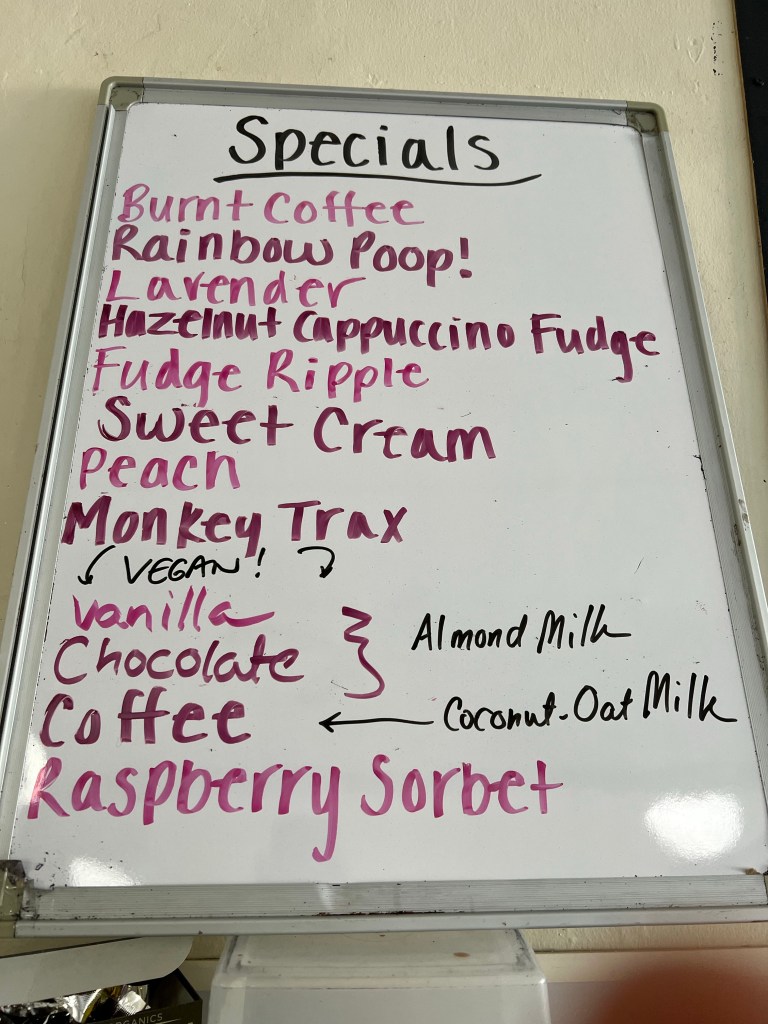 Specials
Burnt Coffee
Rainbow Poop!
Lavender
Hazelnut Cappuccino Fudge
Fudge Ripple
Sweet Cream
Peach
Monkey Trax
VEGAN!
Vanilla
Chocolate
Almond Milk
Coffee
Coconut-Oat Milk
Raspberry Sorbet
ORGANICS